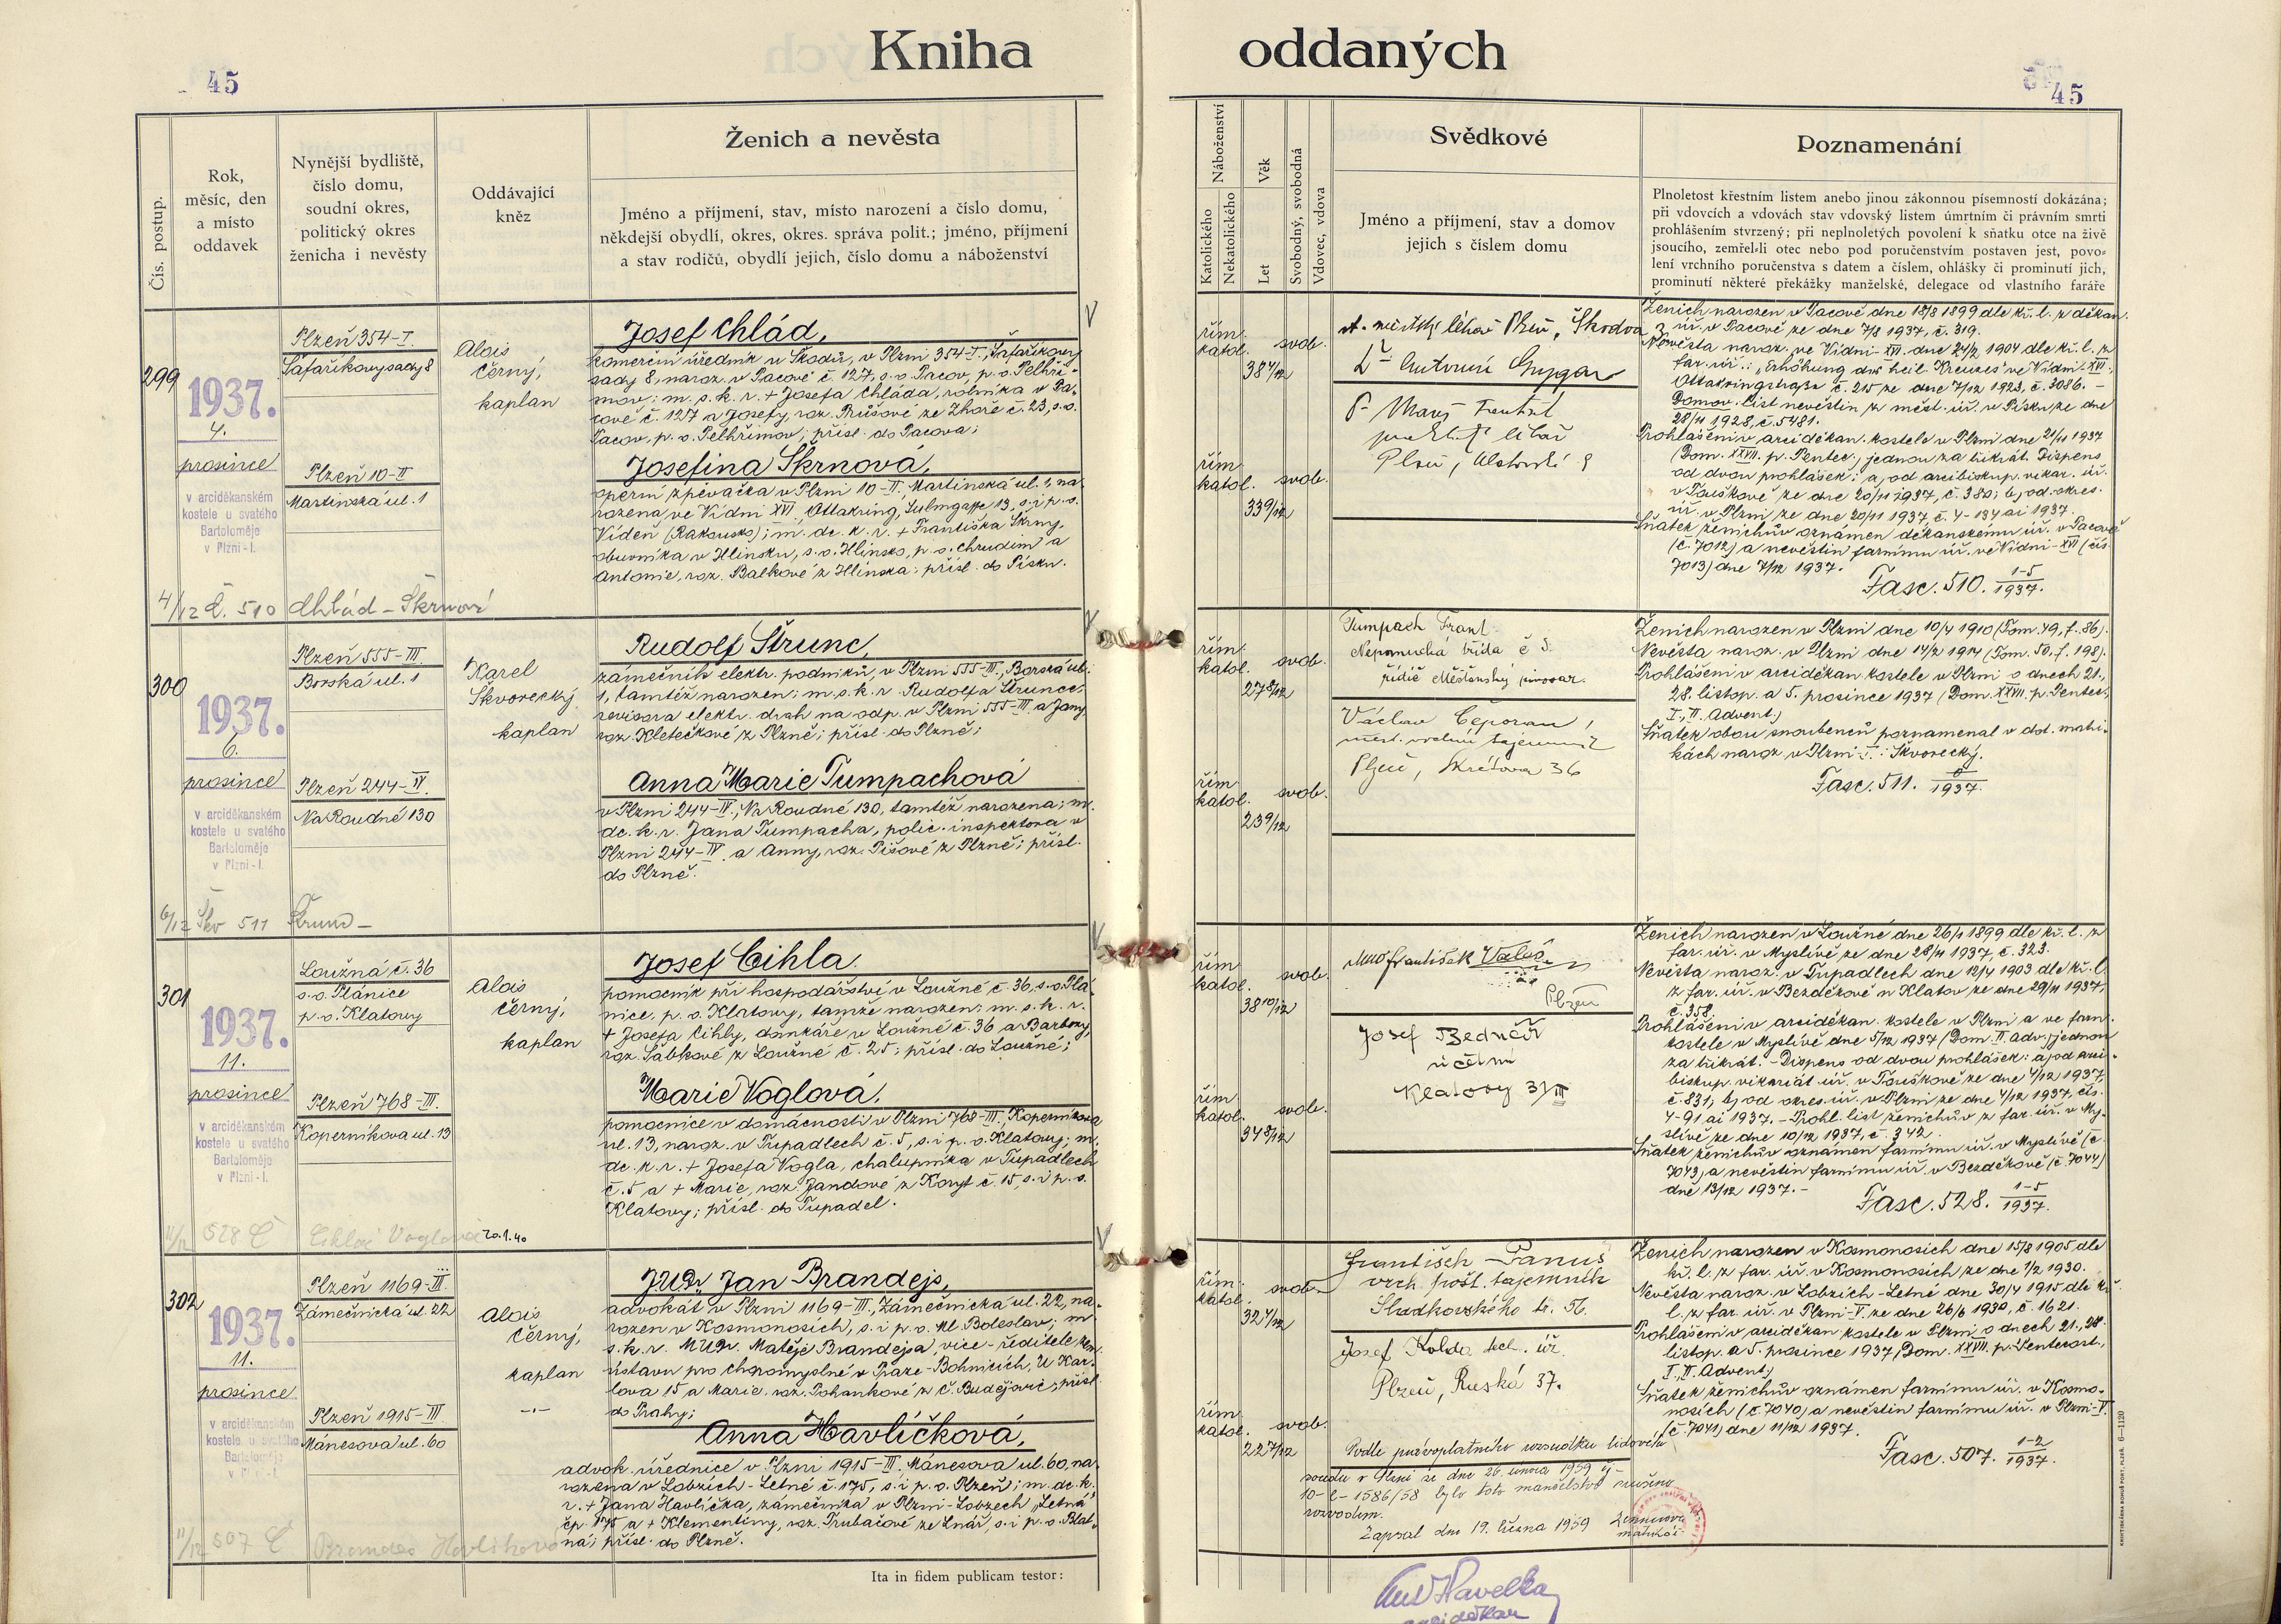 Kniha oddaných
45
45
Čís. postup.
Rok,
měsíc, den
a místo
oddavek
Nynější bydliště,
číslo domu,
soudní okres,
politický okres
ženicha i nevěsty
Oddávající
kněz
Ženich a nevěsta
Jméno a příjmení, stav, místo narození a číslo domu,
někdejší obydlí, okres, okres. správa polit.; jméno, příjmení
a stav rodičů, obydlí jejich, číslo domu a náboženství
Náboženství
Katolického
Nekatolického
Věk
Let
Svobodný, svobodná
Vdovec, vdova
Svědkové
Jméno a příjmení, stav a domov
jejich s číslem domu
Poznamenání
Plnoletost křestním listem anebo jinou zákonnou písemností dokázána;
při vdovcích a vdovách stav vdovský listem úmrtním či právním smrti
prohlášením stvrzený; při neplnoletých povolení k sňatku otce na živě
jsoucího, zemřel-li otec nebo pod poručenstvím postaven jest, povo-
lení vrchního poručenstva s datem a číslem, ohlášky či prominutí jich,
prominutí některé překážky manželské, delegace od vlastního faráře
299
1937.
4.
prosince
v arciděkanském
kostele u svatého
Bartoloměje
v Plzni - I.
Plzeň 354-I.
Šafaříkovy sady 8
Plzeň 10-II
Martinská ul. 1
Alois
Černý,
kaplan
Josef Chlád,
komerční úředník u Škodů, v Plzni 354-I., Šafaříkovy
sady 8, naroz. v Pacově č. 127, s. o. Pacov, p. o. Pelhři-
mov; m. s. k. r. + Josefa Chláda, rolníka v Pa-
cově č. 127 a Josefy, roz. Průšové ze Zhoře č. 23, s. o.
Pacov, p. o. Pelhřimov; přísl. do Pacova;
Josefina Škrnová,
operní zpěvačka v Plzni 10-II., Martinská ul. 1, na-
rozena ve Vídni XVI. Ottakring, Sulmgasse 13, s. i p. o.
Vídeň (Rakousko); m. dc. k. r. + Františka Škrny,
obuvníka v Hlinsku, s. o. Hlinsko, p. o. Chrudim a
Antonie, roz. Balkové z Hlinska; přísl. do Písku.
4/12 Č. 510 Chlád - Škrnová
řím.
katol.
38 4/12
svob.
řím.
katol.
33 9/12
svob.
Ženich narozen v Pacově dne 18/8 1899 dle kř. l. z děkan.
úř. v Pacově ze dne 7/8 1937, č. 319.
Nevěsta naroz. ve Vídni-XVI. dne 24/2 1904 dle kř. l. z
far. úř.: „Erhöhung des heil. Kreuzes" ve Vídni-XVI.,
Ottakringstraße č. 215 ze dne 7/12 1923, č. 3086. -
Domov. list nevěstin z měst. úř. v Písku ze dne
28/11 1928, č. 5481.
Prohlášeni v arciděkan. kostele v Plzni dne 21/11 1937
(Dom. XXVII. p. Pentec., jednou za třikrát. Dispens
od dvou prohlášek: a) od arcibiskup. vikar. úř.
v Touškově ze dne 20/11 1937, č. 380; b) od okres.
úř. v Plzni ze dne 20/11 1937, č. 4-134 ai 1937.
Sňatek ženichův oznámen děkanskému úř. v Pacově
(č. 7012) a nevěstin farnímu úř. ve Vídni-XVI (čís.
7013) dne 7/12 1937.
Fasc. 510. 1-5/1937.
300
1937.
6.
prosince
v arciděkanském
kostele u svatého
Bartoloměje
v Plzni - I.
Plzeň 555-III.
Borská ul. 1
Plzeň 244-IV.
Na Roudné 130
Karel
Škvorecký
kaplan
Rudolf Štrunc,
zámečník elektr. podniků, v Plzni 555-III., Borská ul.
1, tamtéž narozen; m. s. k. r. Rudolfa Štrunce,
revisora elektr. drah na odp. v Plzni 555-III. a Jany,
roz. Kletečkové z Plzně; přísl. do Plzně;
Anna Marie Tumpachová
v Plzni 244-IV., Na Roudné 130, tamtéž narozena; m.
dc. k. r. Jana Tumpacha, polic. inspektora v
Plzni 244-IV. a Anny, roz. Pišové z Plzně; přísl.
do Plzně.
6/12 Škv 511 Štrunc -
řím.
katol.
27 8/12
svob.
řím.
katol.
23 9/12
svob.
Tumpach Frant.
Nepomucká třída č 5.
řidič Měšťanský pivovar.
Václav Čeporan,
Plzeň, Skrétova 36
Ženich narozen v Plzni dne 10/4 1910 (Tom. 49, f. 86).
Nevěsta naroz. v Plzni dne 14/2 1914 (Tom. 50. f. 198).
Prohlášeni v arciděkan. kostele v Plzni o dnech 21.,
28. listop. a 5. prosince 1937 (Dom. XXVII. p. Pentec.,
I., II. Advent.)
Sňatek obou snoubenců poznamenal v dot. matri-
kách naroz. v Plzni-I.: Škvorecký.
Fasc. 511. /1937.
301
1937.
11.
prosince
v arciděkanském
kostele u svatého
Bartoloměje
v Plzni - I.
Loužná č. 36
s. o. Plánice
p. o. Klatovy
Plzeň 768-III.
Koperníkova ul. 13
Alois
Černý,
kaplan
Josef Cihla.
pomocník při hospodářství v Loužné č. 36, s. o. Plá-
nice, p. o. Klatovy, tamže narozen; m. s. k. r.
+ Josefa Cihly, domkáře v Loužné č. 36 a Barbory,
roz. Šabkové z Loužné č. 25; přísl. do Loužné;
Marie Voglová,
pomocnice v domácnosti v Plzni 768-III., Koperníkova
ul. 13, naroz. v Tupadlech č. 5, s. i p. o. Klatovy; m.
dc. k. r. + Josefa Vogla, chalupníka v Tupadlech
č. 5 a + Marie, roz. Jandové z Koryt č. 15, s. i p. o.
Klatovy; přísl. do Tupadel.
11/12 528 Č Cihla Voglová 20.1.40
řím.
katol.
38 10/12
svob.
řím.
katol.
34 8/12
svob.
František Valeš
Plzeň
Josef Bednář
účetní
Klatovy 31/III
Ženich narozen v Loužné dne 26/1 1899 dle kř. l. z
far. úř. v Myslívě ze dne 28/11 1937, č. 323.
Nevěsta naroz. v Tupadlech dne 12/4 1903 dle kř. l.
z far. úř. v Bezděkově u Klatov ze dne 29/11 1937,
č. 358.
Prohlášeni v arciděkan. kostele v Plzni a ve farn.
kostele v Myslívě dne 5/12 1937 (Dom. II. Adv.) jednou
za třikrát. - Dispens od dvou prohlášek: a) od arci-
biskup. vikariát. úř. v Touškově ze dne 4/12 1937,
č. 831; b) od okres. úř. v Plzni ze dne 4/12 1937, čís.
4-91 ai 1937. - Prohl. list ženichův z far. úř. v My-
slívě ze dne 10/12 1937, č. 342.
Sňatek ženichův oznámen farnímu úř. v Myslívě (č.
7043) a nevěstin farnímu úř. v Bezděkově (č. 7044)
dne 13/12 1937. -
Fasc. 528. 1-5/1937.
302
1937.
11.
prosince
v arciděkanském
kostele u svatého
Bartoloměje
v Plzni - I.
Plzeň 1169-III.
Zámečnická ul. 22
Plzeň 1915-III
Mánesova ul. 60
Alois
Černý,
kaplan
JUDr. Jan Brandejs,
advokát v Plzni 1169-III., Zámečnická ul. 22, na-
rozen v Kosmonosích, s. i p. o. Ml. Boleslav; m.
s. k. r. MUDr. Matěje Brandejsa, více-ředitele zem.
ústavu pro choromyslné v Praze-Bohnicích, U Kar-
lova 15 a Marie, roz. Pohankové z Č. Budějovic; přísl.
do Prahy;
Anna Havlíčková,
advok. úřednice v Plzni 1915-III. Mánesova ul. 60, na-
rozena v Lobzích-Letné č. 175, s. i p. o. Plzeň; m. dc. k.
r. + Jana Havlíčka, zámečníka v Plzni-Lobzech „Letná"
čp. 175 a + Klementiny, roz. Trubačové ze Lnář, s. i p. o. Blat-
ná; přísl. do Plzně.
11/12 507 Č Brandejs Havlíčková
řím.
katol.
32 4/12
svob.
řím.
katol.
22 7/12
svob.
František Panuš
vrch. pošt. tajemník
Sladkovského tř. 56.
Josef Kolda tech. úř.
Plzeň, Ruská 37.
Podle právoplatného rozsudku lidového
soudu v Plzni ze dne 26. února 1959 čj-
10-C-1586/58 bylo toto manželství zrušeno
rozvodem.
Zapsal dne 19. března 1959
Ženich narozen v Kosmonosích dne 15/8 1905 dle
kř. l. z far. úř. v Kosmonosích ze dne 1/2 1930.
Nevěsta naroz. v Lobzích-Letné dne 30/4 1915 dle kř.
l. z far. úř. v Plzni-V. ze dne 26/6 1930, č. 1621.
Prohlášeni v arciděkan. kostele v Plzni o dnech 21., 28.
listop. a 5. prosince 1937 (Dom. XXVII. p. Pentecost.,
I., II. Advent.)
Sňatek ženichův oznámen farnímu úř. v Kosmo-
nosích (č. 7040) a nevěstin farnímu úř. v Plzni-V.
(č. 7041) dne 11/12 1937.
Fasc. 507. 1-2/1937.
Ita in fidem publicam testor:
Ant Havelka
arciděkan